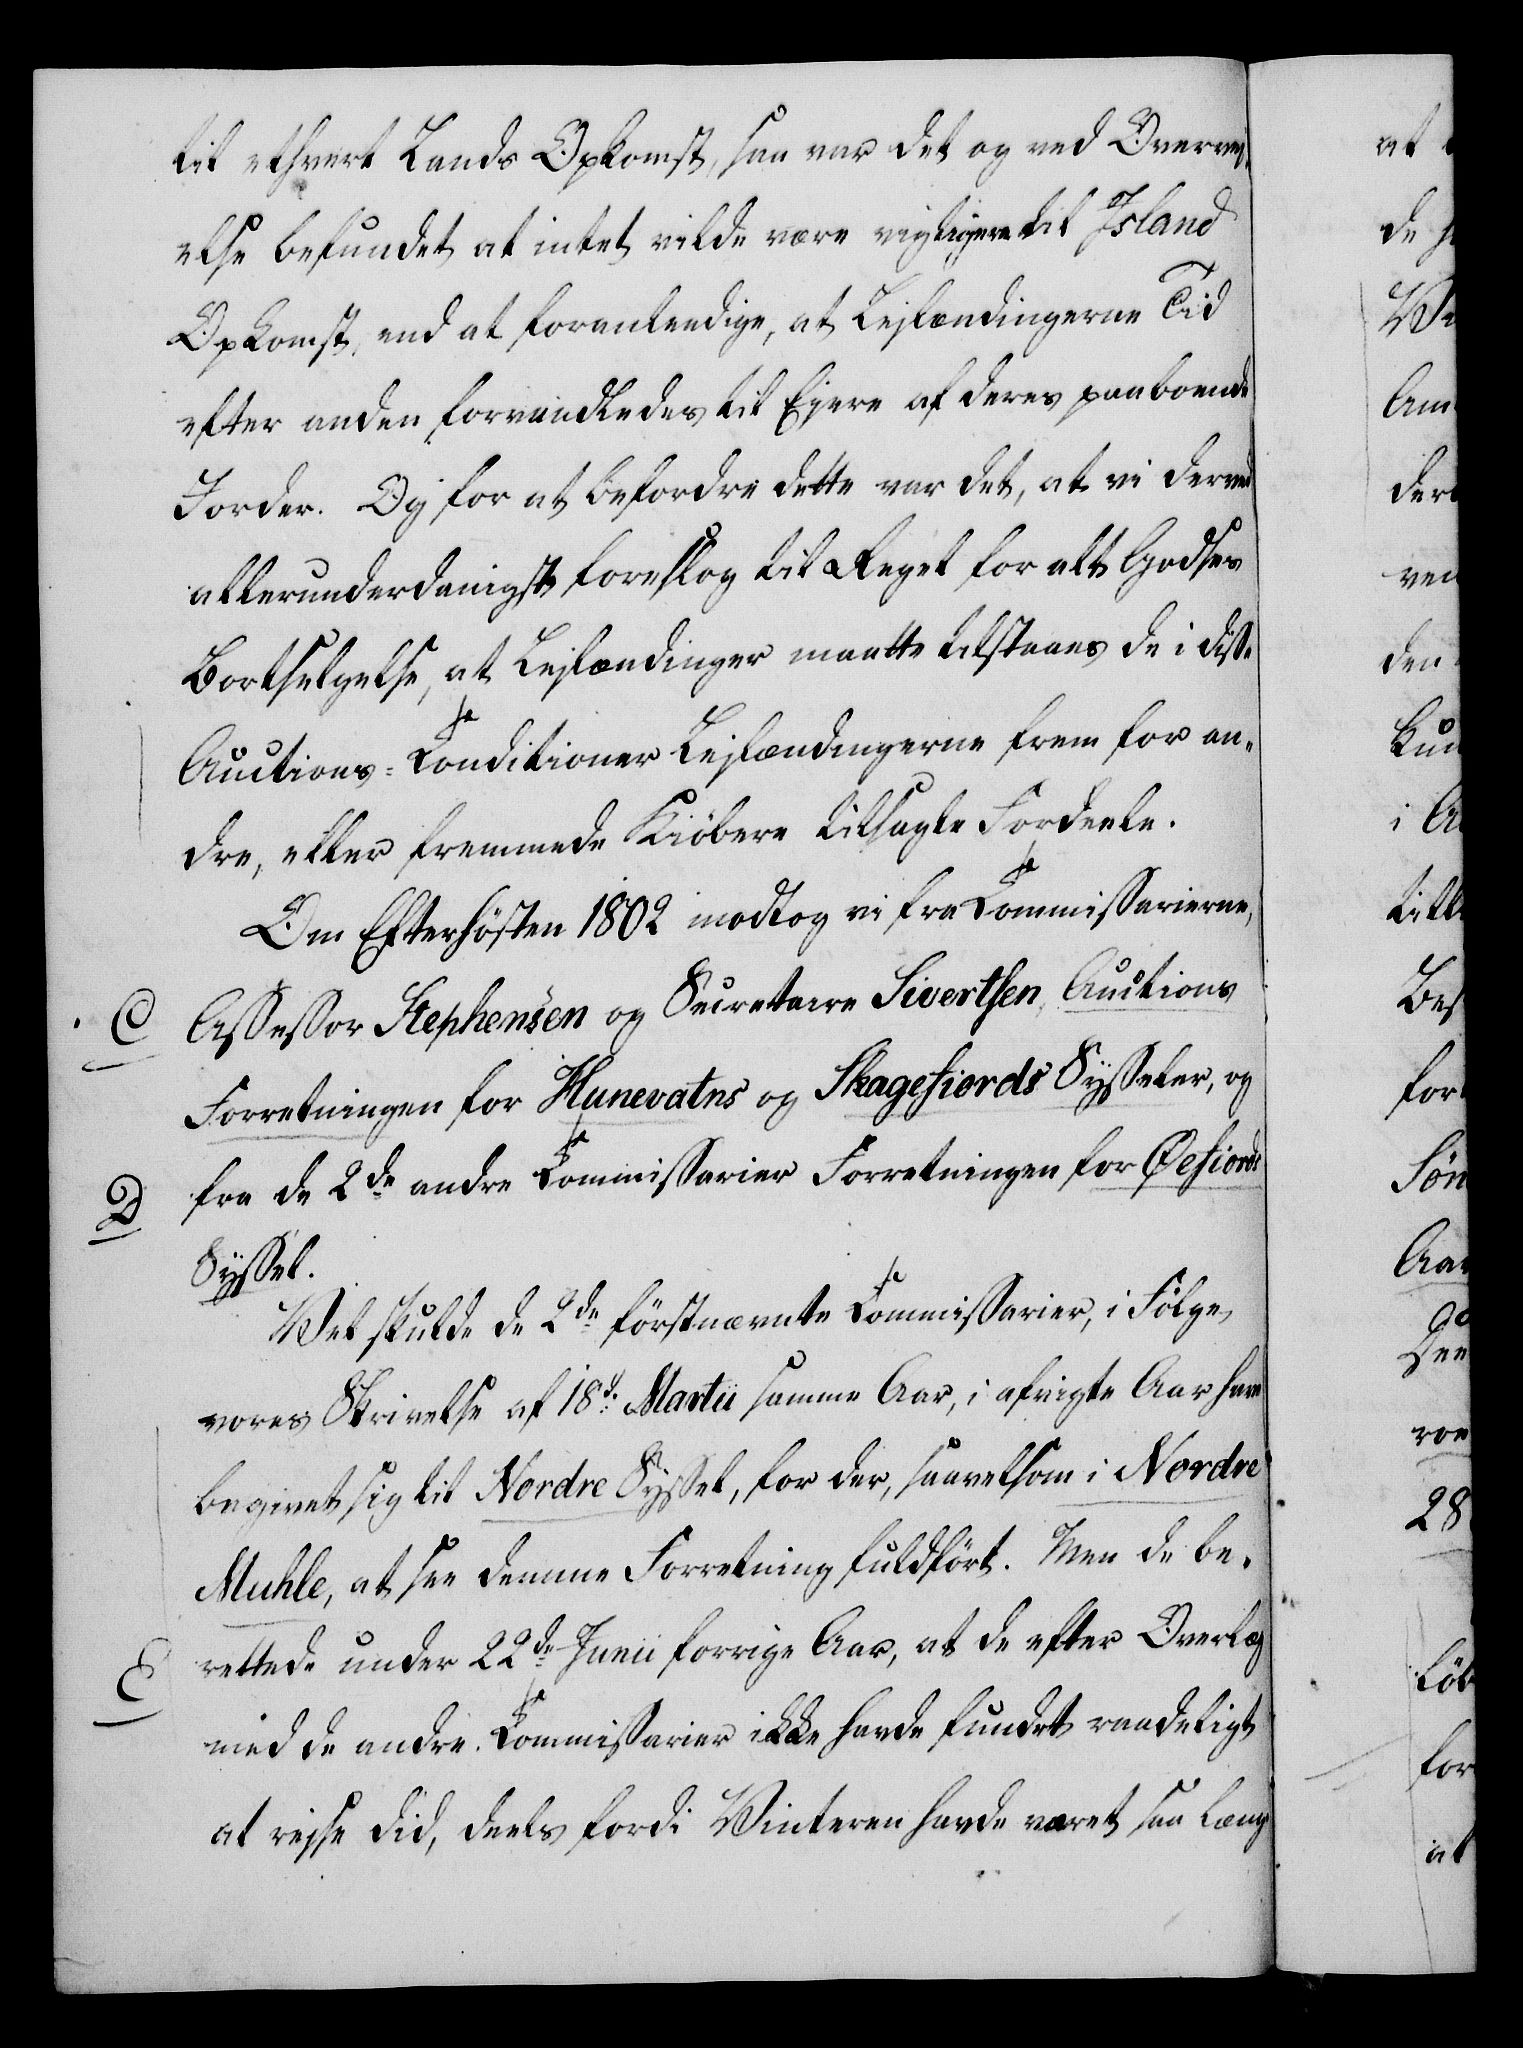 til ethvert Lands Opkomst, saa var det og ved Overvej-
else befundet at intet vilde være vigtigere til Island
Opkomst, end at foranledige, at Lejlændingerne Tid
efter anden forvandledes til Ejere af deres paaboende
Jorder. Og for at befordre dette var det, at vi derved
allerunderdanigst foreslog til Regel for alt Godses
Bortselgelse, at Lejlændinger maatte tilstaaes de i disse
Auctions-Conditioner Lejlændingerne frem for an-
dre, eller fremmede Kiöbere tilsagte Fordeele.
Om Efterhösten 1802 modtog vi fra Commissarierne,
C Assessor Stephensen og Secretaire Sivertsen, Auctions
Forretningen for Hunevatns og Skagefiords Sysseler, og
D fra de 2de andre Commissarier Forretningen for Øefiords
Syssel.
Vel skulde de 2de förstnævnte Commissarier, i Fölge
vores Skrivelse af 18de Martii samme Aar, i afvigte Aar have
begivet sig til Nordre Syssel, for der, saavelsom i Nordre
Muhle, at see denne Forretning fuldfört. Men de be-
E rettede under 22de Junii forrige Aar, at de efter Overlæg
med de andre Commissarier ikke havde fundet raadeligt
at rejse did, deels fordi Vinteren havde været saa lang
at
de
Am
den
i A
for
Søn
Aar
28
for
at